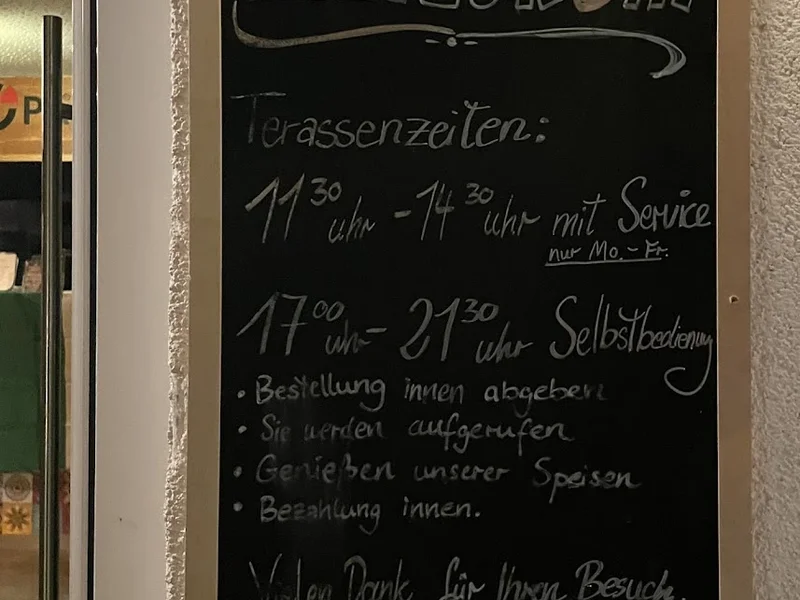 Terassenzeiten:
11 30 uhr - 14 30 uhr mit Service
nur Mo. - Fr.
17 00 uhr - 21 30 uhr Selbstbedienung
• Bestellung innen abgeben
• Sie werden aufgerufen
• Genießen unserer Speisen
• Bezahlung innen.
Vielen Dank für Ihren Besuch.